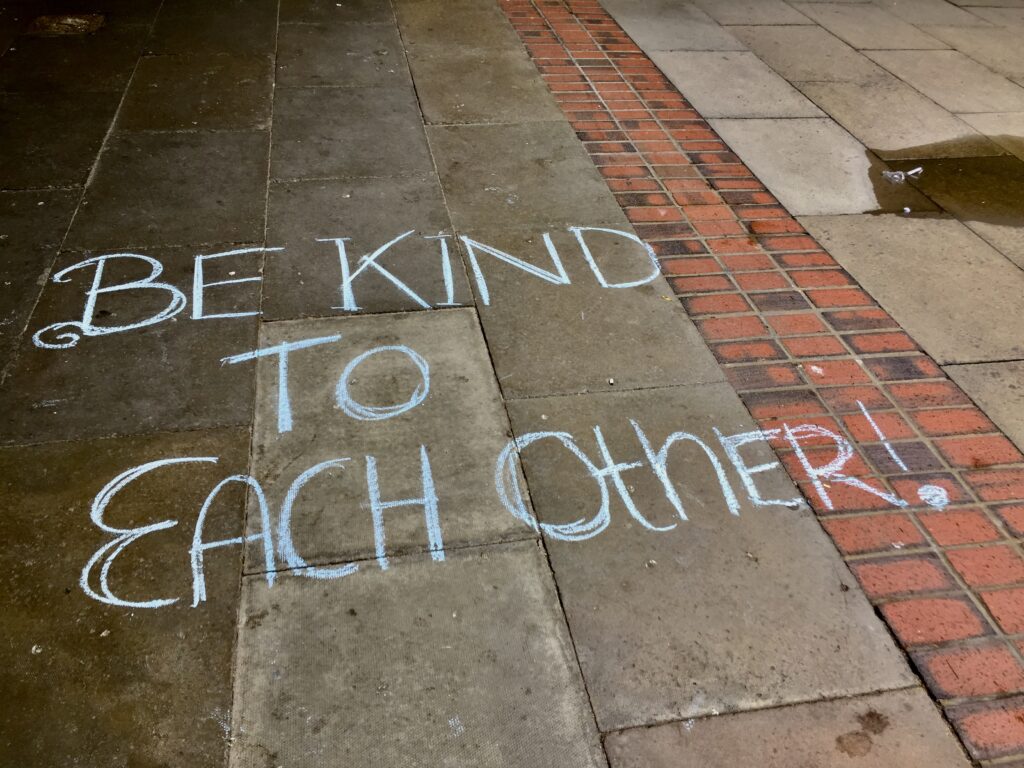 BE KIND
TO
EACH OTHER!